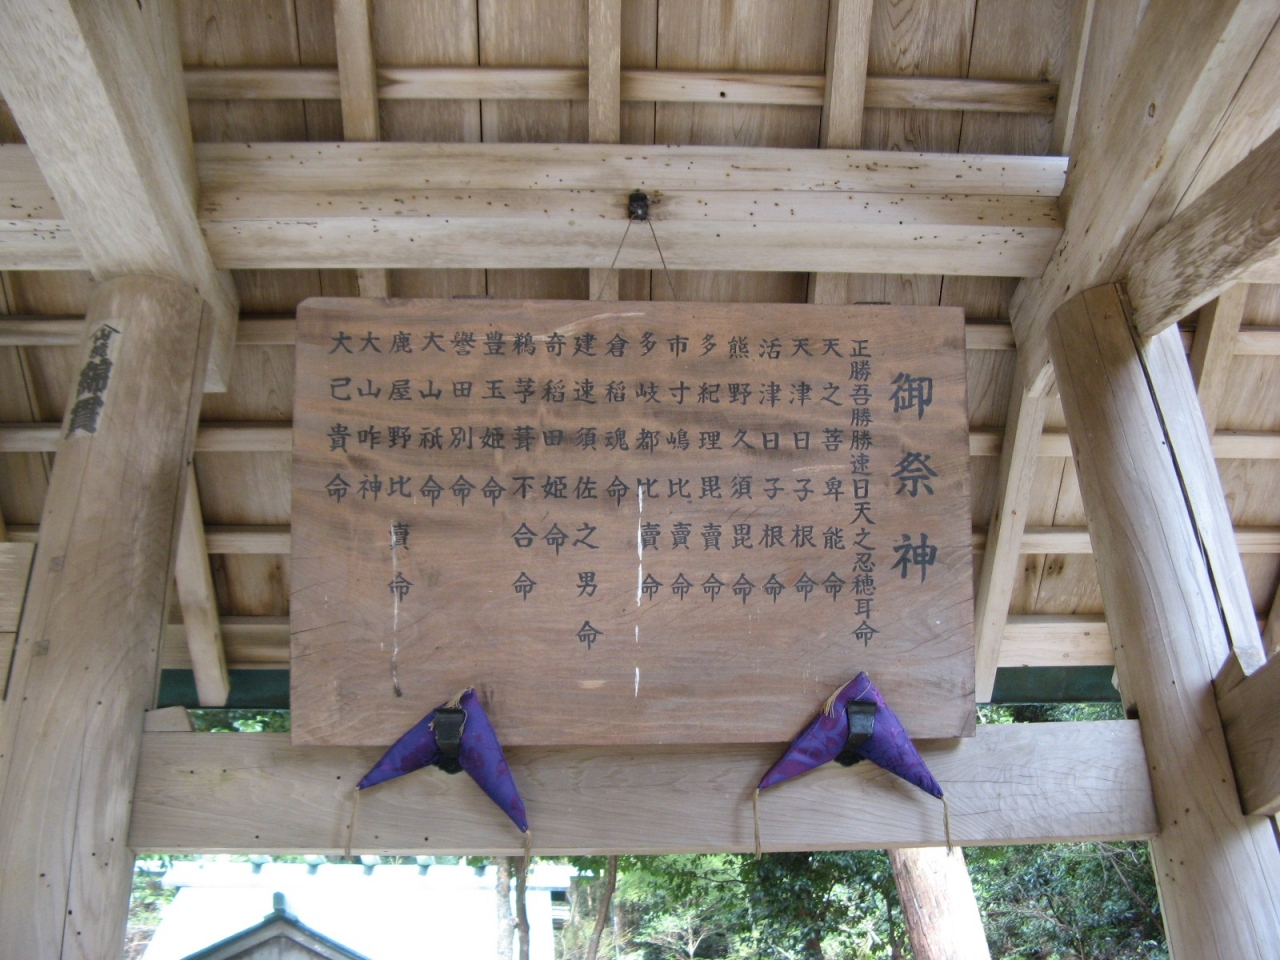 御祭神
正勝吾勝勝速日天之忍穂耳命
天之菩卑能命
天津日子根命
活津日子根命
熊野久須毘命
多紀理毘賣命
市寸嶋比賣命
多岐都比賣命
倉稲魂命
建速須佐之男命
奇稲田姫命
鵜茅葺不合命
豊玉姫命
譽田別命
大山祇命
鹿屋野比賣命
大山咋神
大己貴命